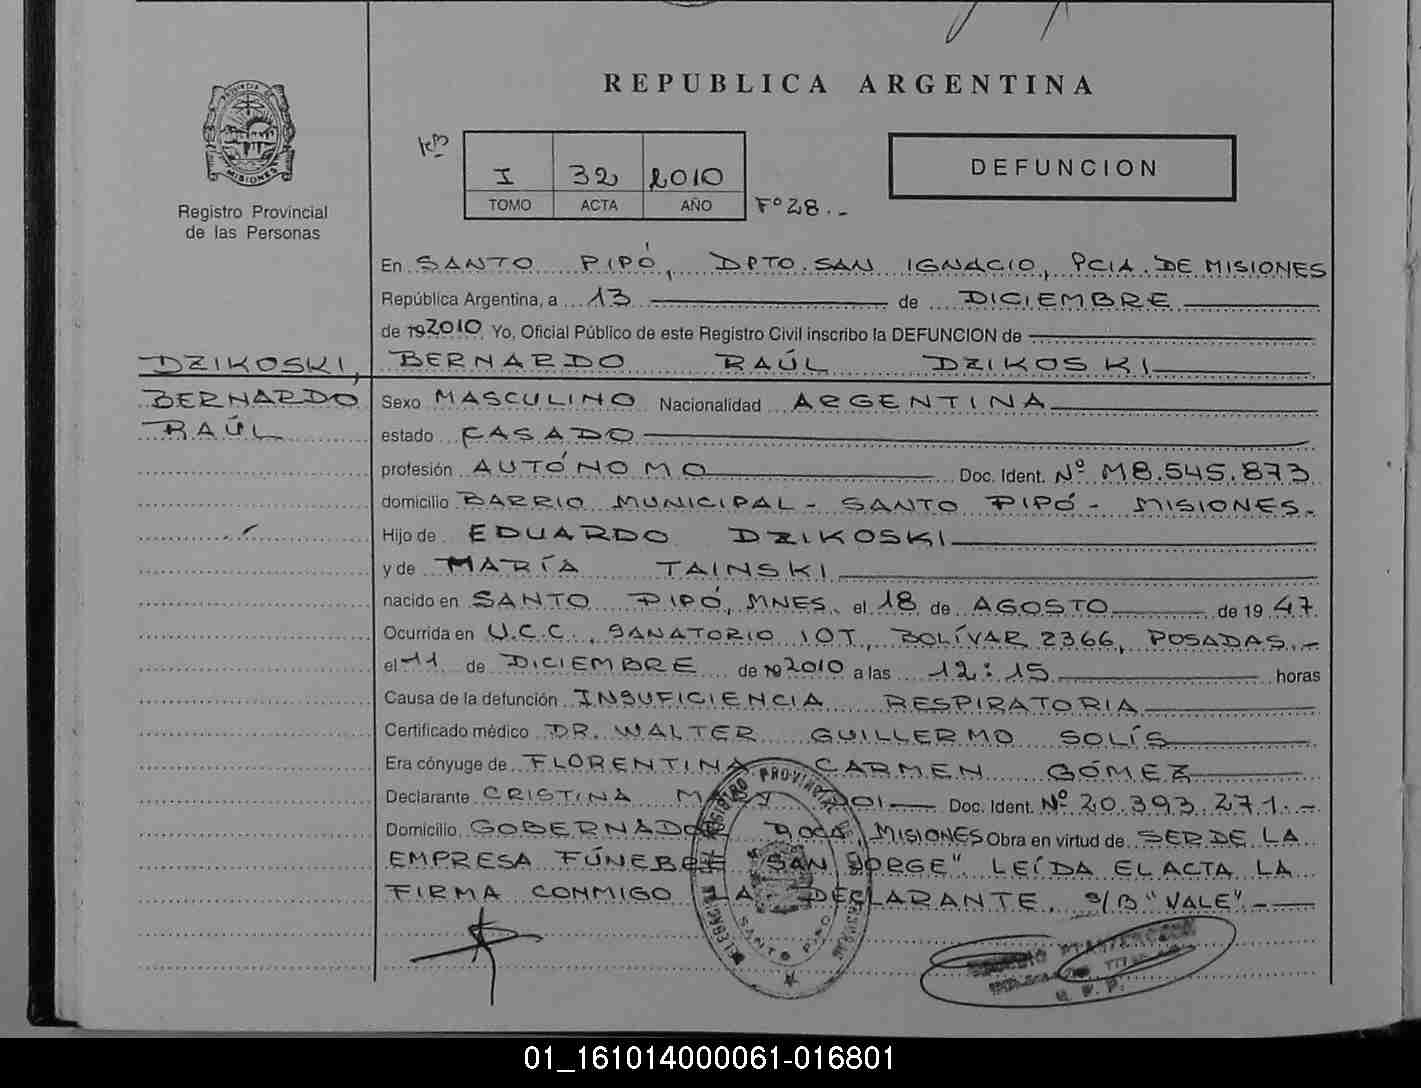 REPUBLICA ARGENTINA
PROVINCIA DE
MISIONES
Registro Provincial
de las Personas
I 32 2010
TOMO ACTA AÑO
Fº 28.-
DEFUNCION
En SANTO PIPÓ, DPTO. SAN IGNACIO, PCIA. DE MISIONES
República Argentina, a 13 de DICIEMBRE
de 19 2010 Yo, Oficial Público de este Registro Civil inscribo la DEFUNCION de
DZIKOSKI, BERNARDO RAÚL
BERNARDO RAÚL DZIKOSKI
Sexo MASCULINO Nacionalidad ARGENTINA
estado CASADO
profesión AUTÓNOMO Doc. Ident. Nº M8.545.873
domicilio BARRIO MUNICIPAL - SANTO PIPÓ - MISIONES.-
Hijo de EDUARDO DZIKOSKI
y de MARÍA TAINSKI
nacido en SANTO PIPÓ, MNES. el 18 de AGOSTO de 19 47.
Ocurrida en U.C.C., SANATORIO IOT, BOLÍVAR 2366, POSADAS.-
el 11 de DICIEMBRE de 19 2010 a las 12:15 horas
Causa de la defunción INSUFICIENCIA RESPIRATORIA
Certificado médico DR. WALTER GUILLERMO SOLÍS
Era cónyuge de FLORENTINA CARMEN GÓMEZ
Declarante CRISTINA Doc. Ident. Nº 20.393.271.-
Domicilio GOBERNADOR ROCA, MISIONES Obra en virtud de SER DE LA
EMPRESA FÚNEBRE "SAN JORGE". LEÍDA EL ACTA LA
FIRMA CONMIGO LA DECLARANTE. S/B "VALE" -
REGISTRO PROVINCIAL DE
SANTO PIPO
01_161014000061-016801